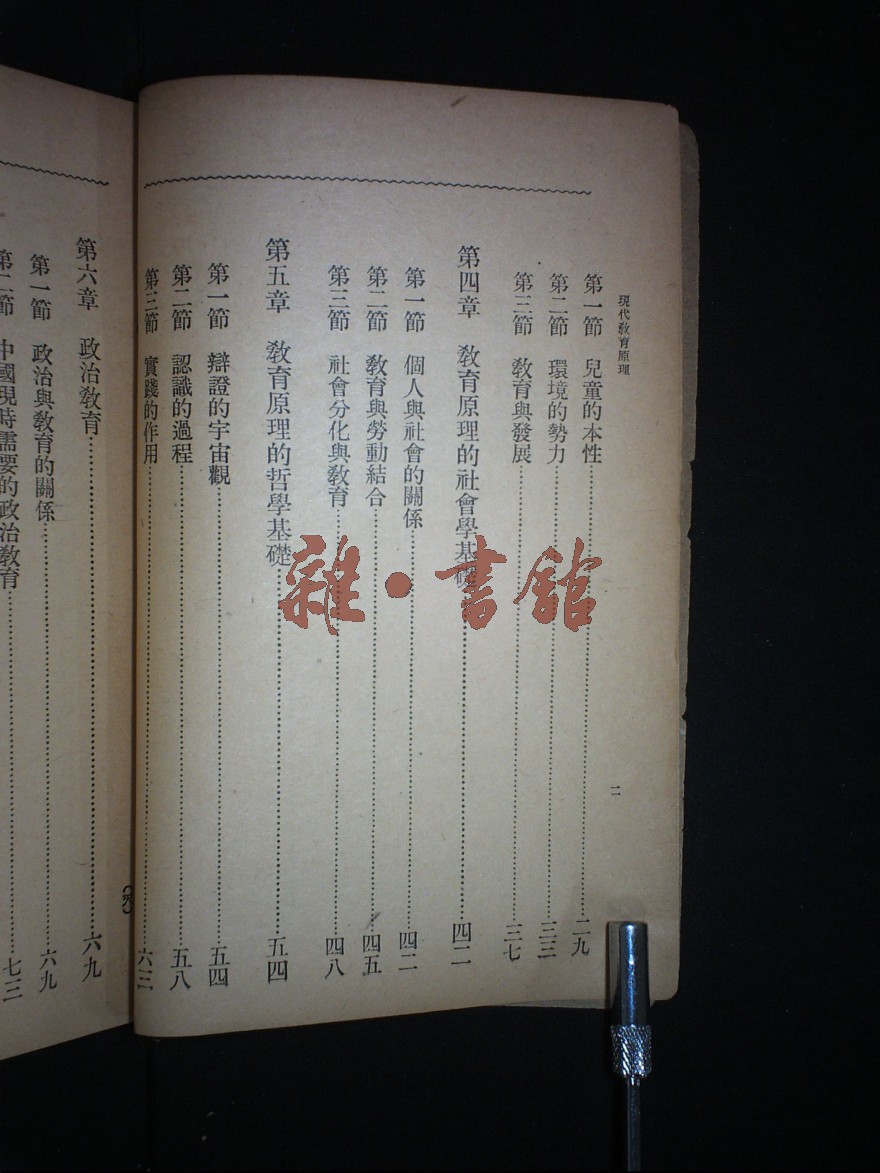 現代敎育原理
二
第一節 兒童的本性……二九
第二節 環境的勢力……三三
第三節 敎育與發展……三七
第四章 敎育原理的社會學基礎……四二
第一節 個人與社會的關係……四二
第二節 敎育與勞動結合……四五
第三節 社會分化與敎育……四八
第五章 敎育原理的哲學基礎……五四
第一節 辯證的宇宙觀……五四
第二節 認識的過程……五八
第三節 實踐的作用……六三
第六章 政治敎育……六九
第一節 政治與敎育的關係……六九
第二節 中國現時需要的政治敎育……七三
雜·書館